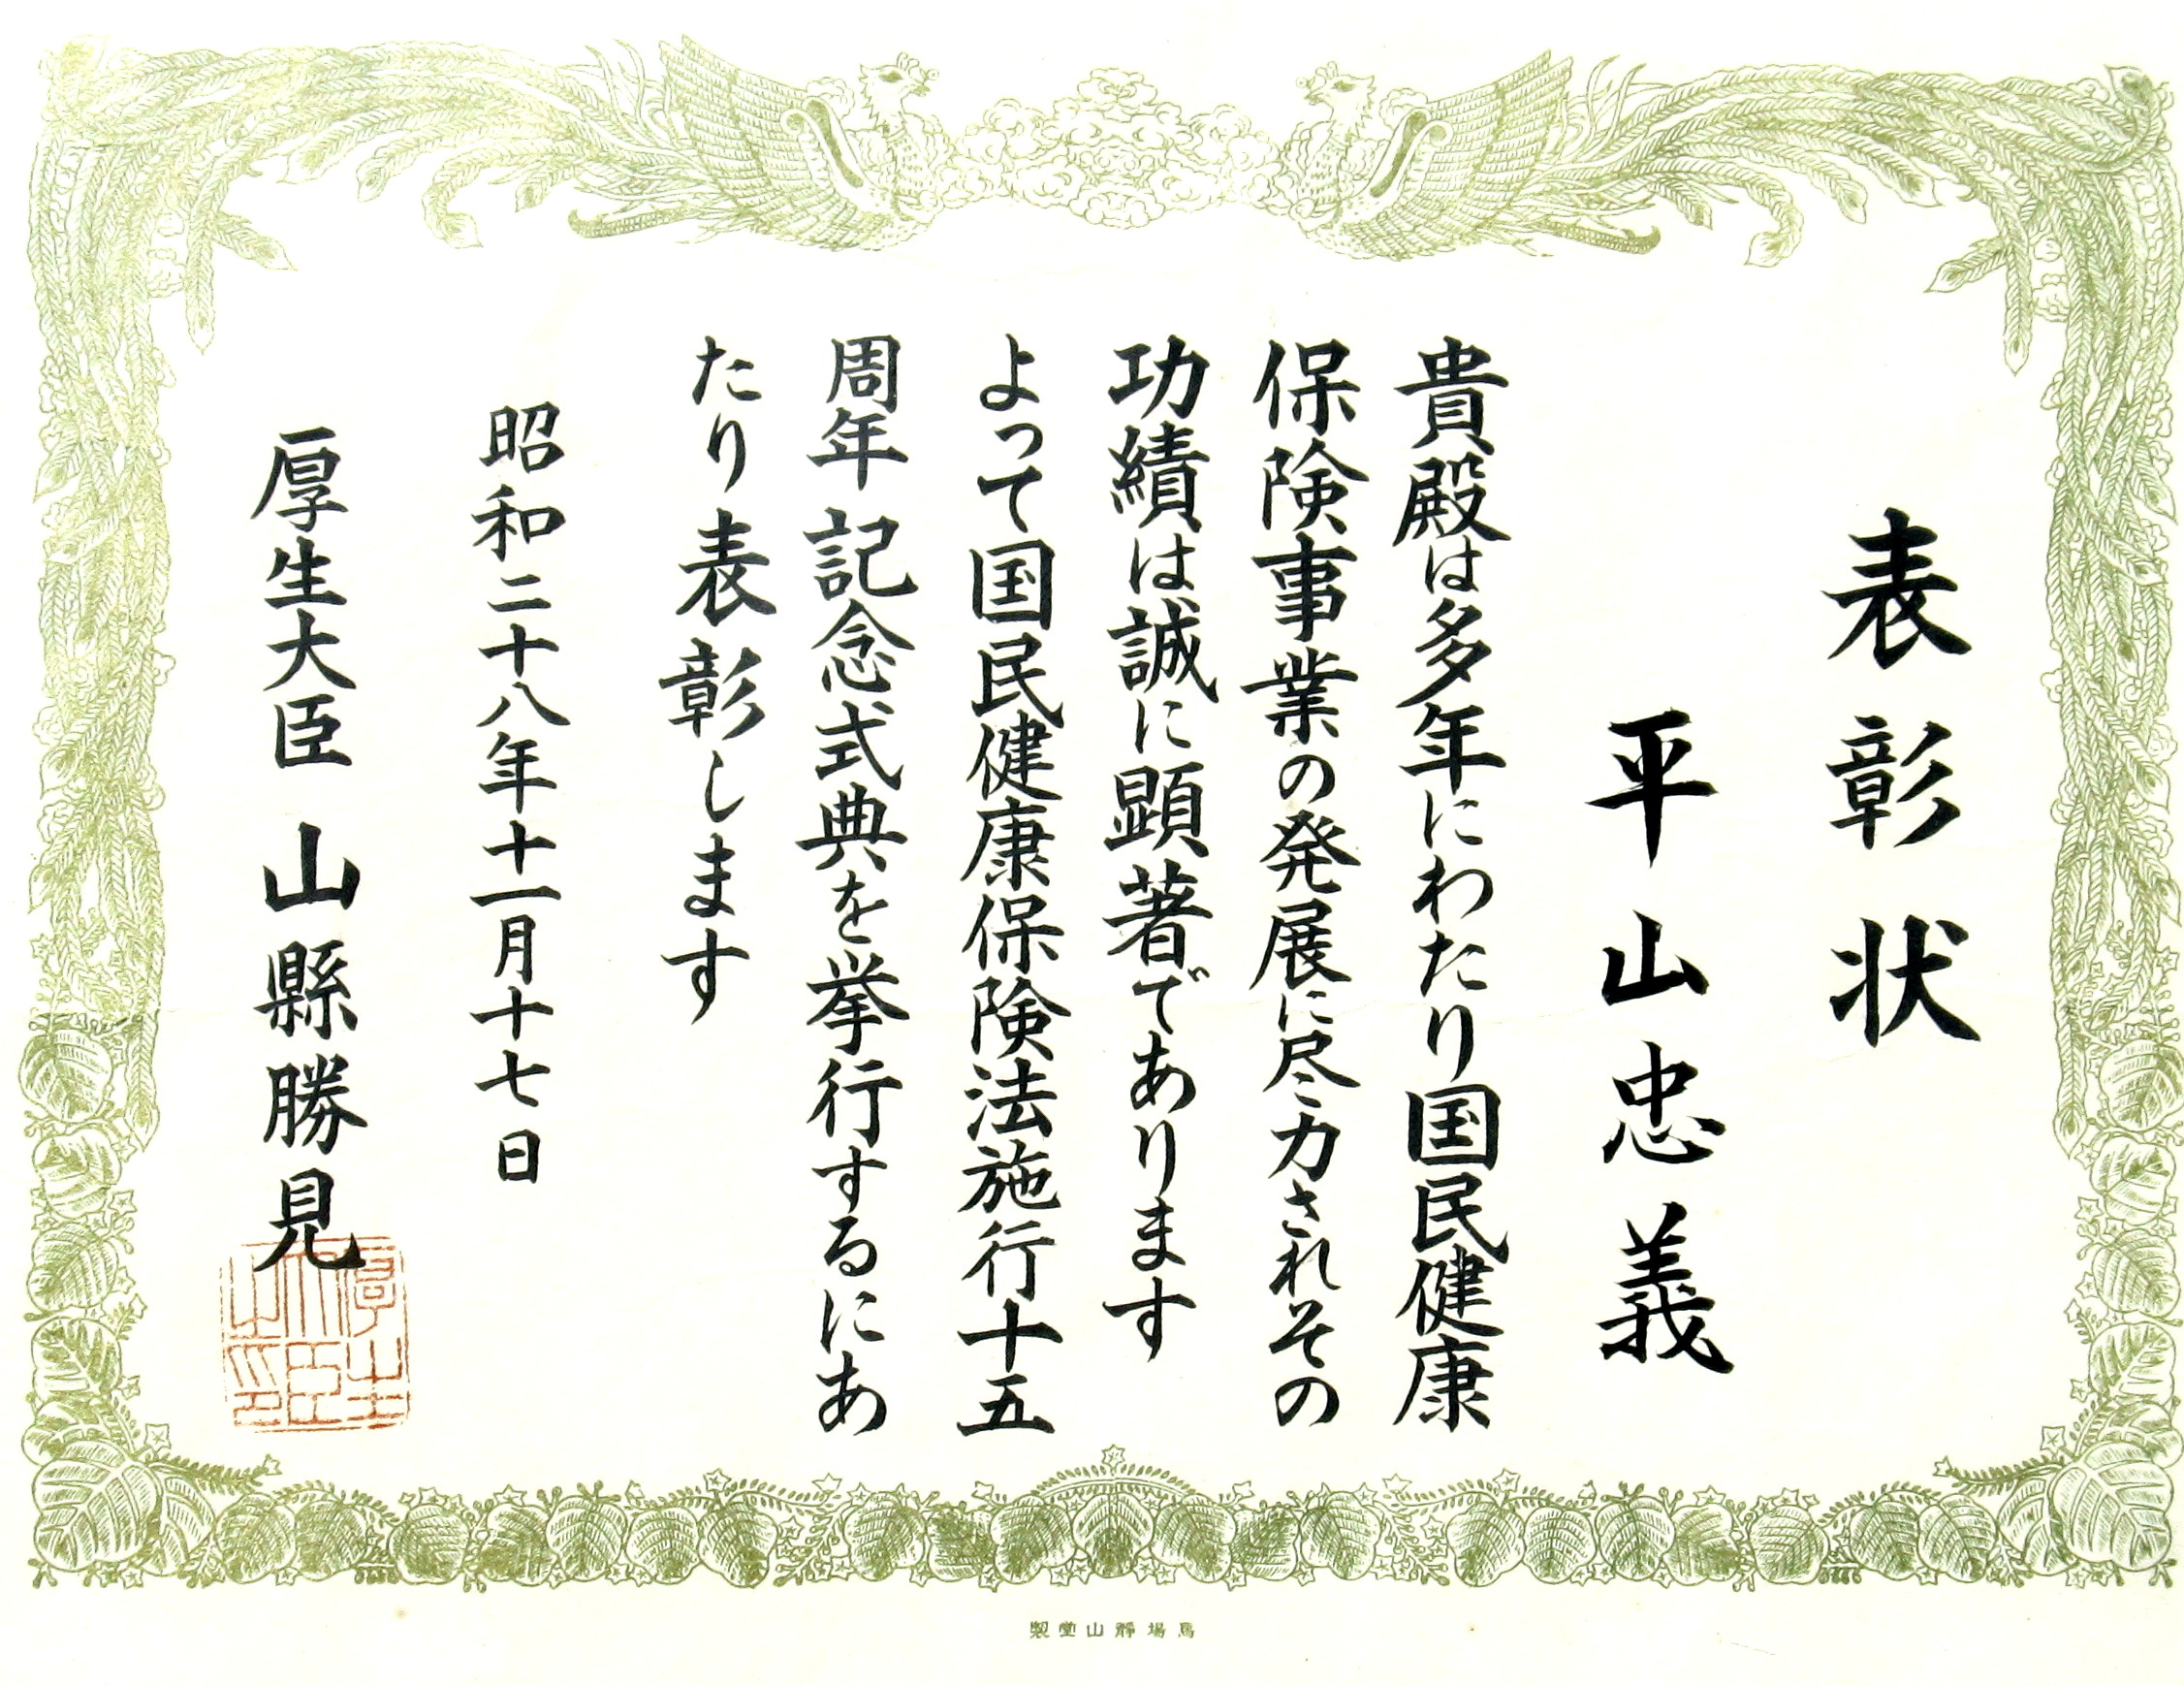 表彰状
平山忠義
貴殿は多年にわたり国民健康
保険事業の発展に尽力されその
功績は誠に顕著であります
よって国民健康保険法施行十五
周年記念式典を挙行するにあ
たり表彰します
昭和二十八年十一月十七日
厚生大臣 山縣勝見
厚生大臣之印
製堂山靜場馬